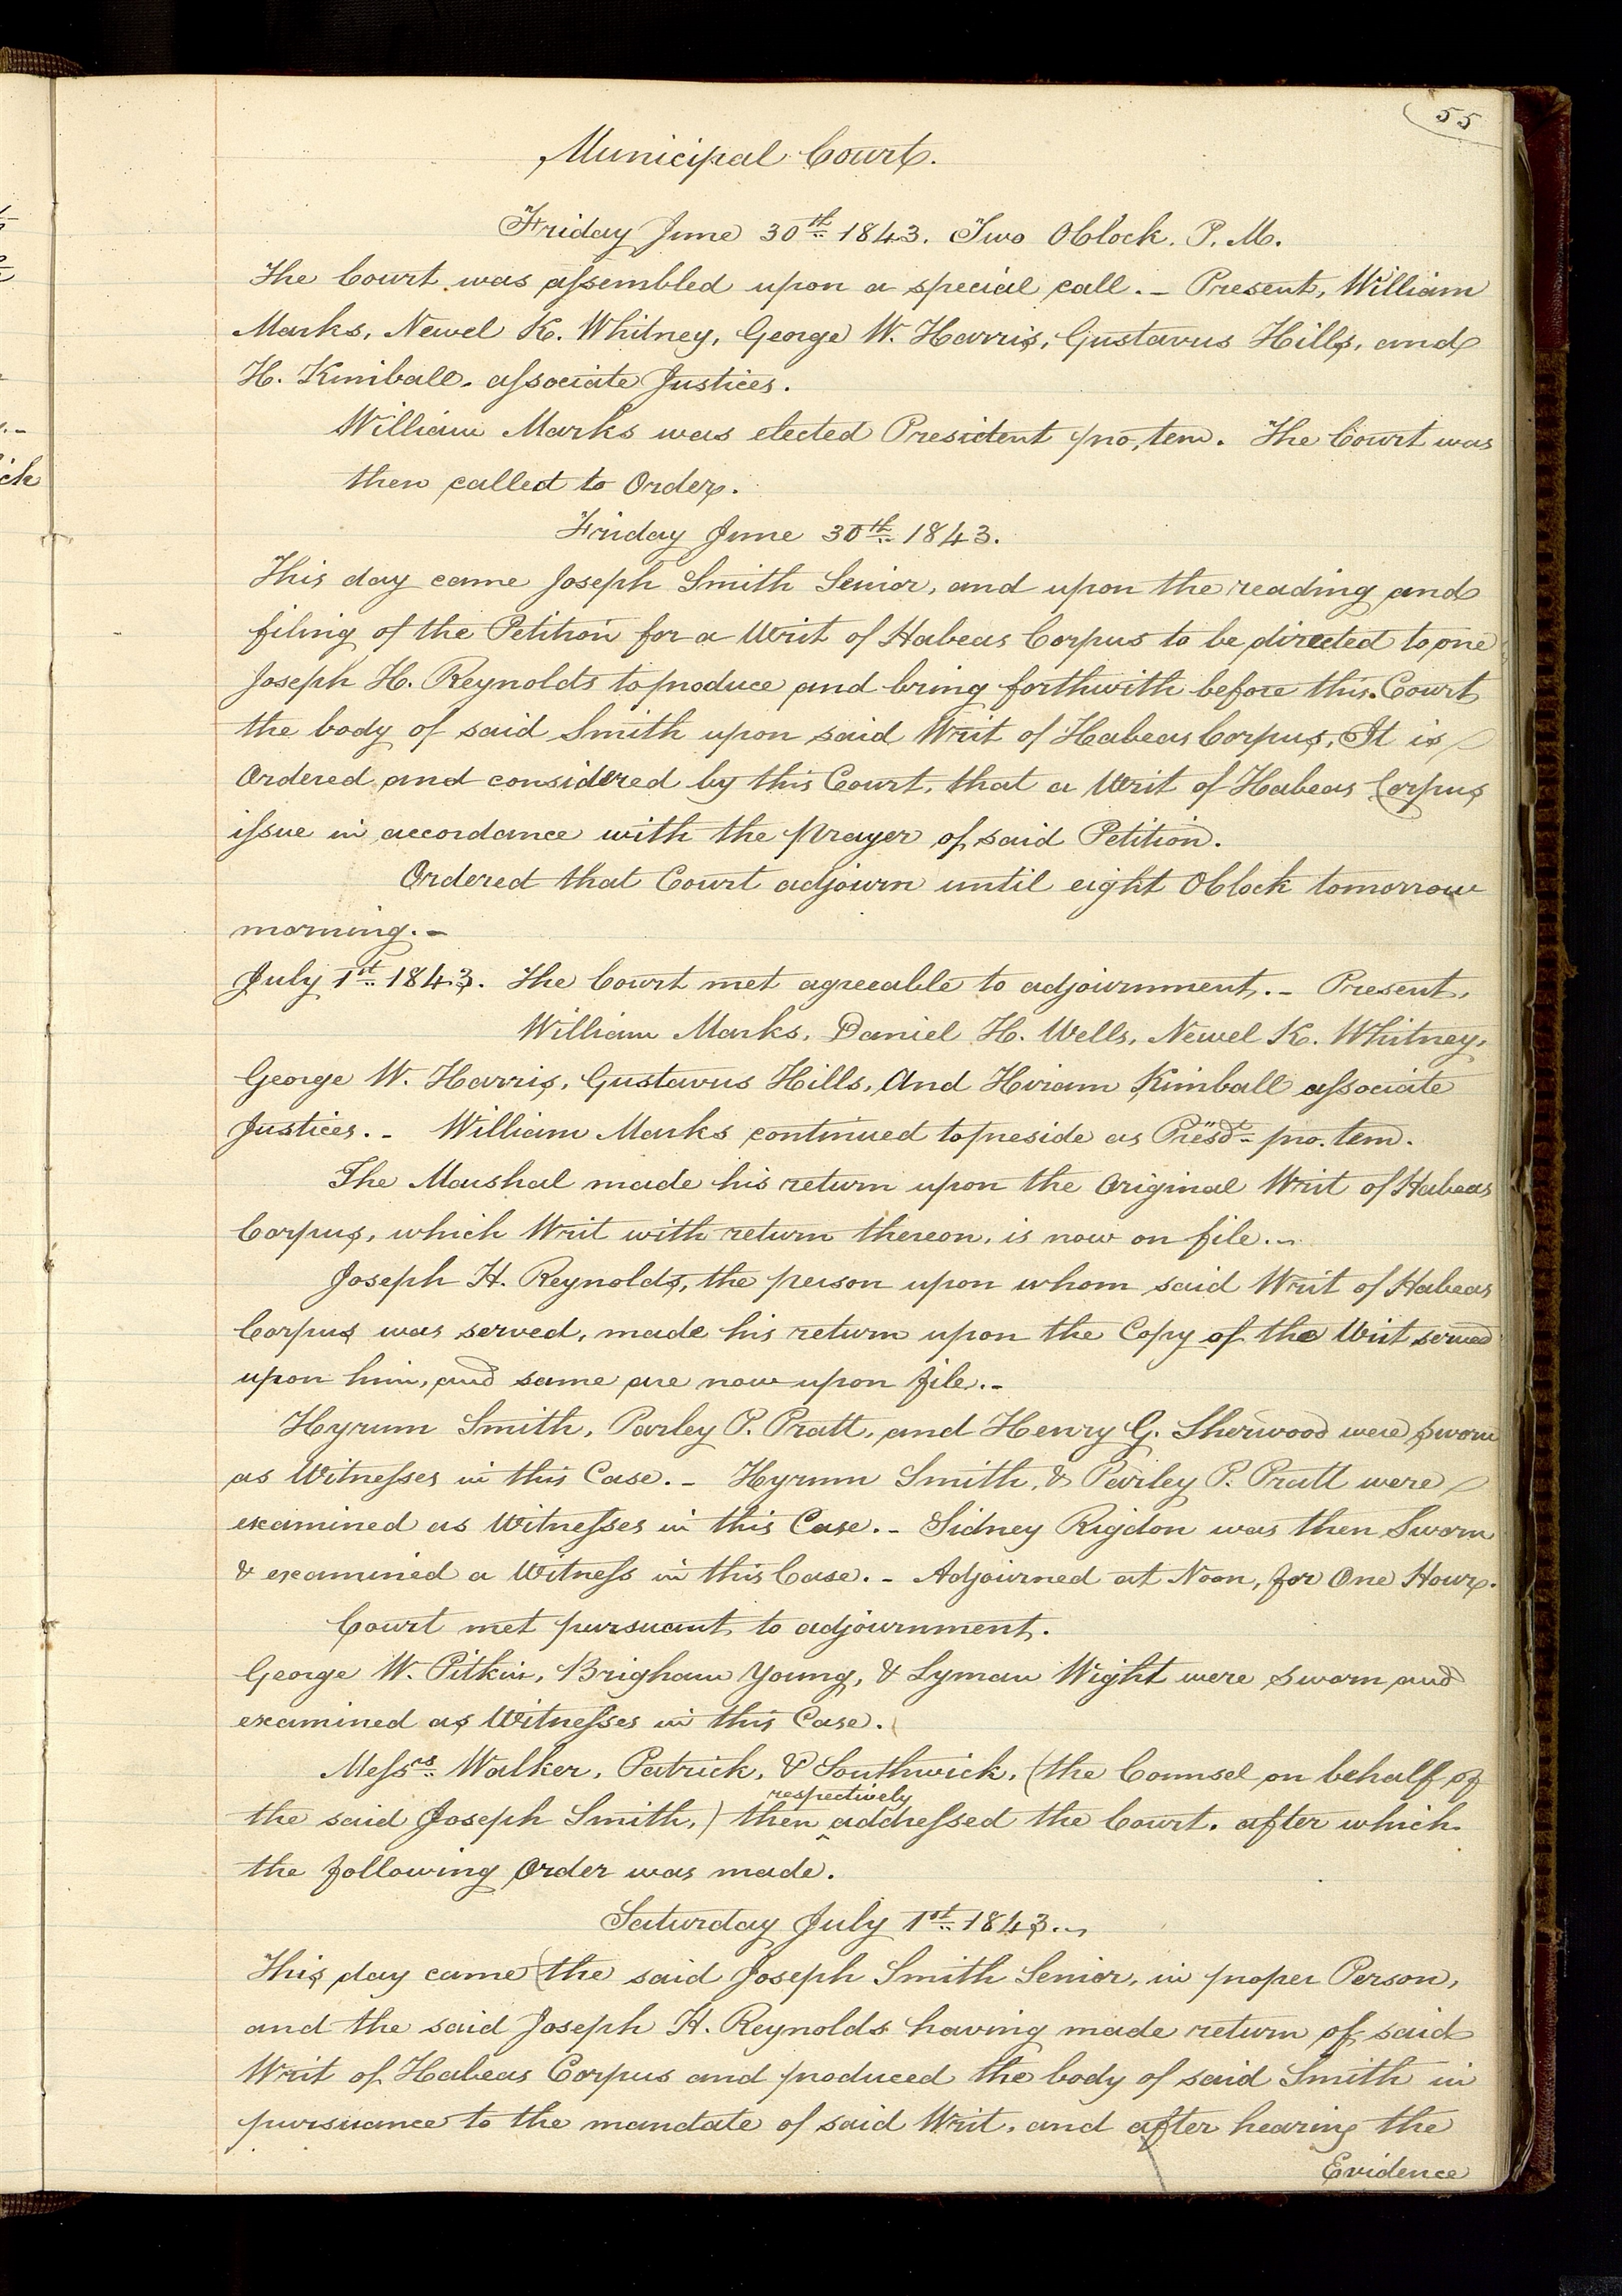 55
Municipal Court.
Friday June 30th 1843. Two OClock. P. M.
The Court was assembled upon a special call. – Present, William
Marks, Newel K. Whitney, George W. Harris, Gustavus Hills, and
H. Kimball. associate Justices.
William Marks was elected President pro, tem. The Court was
then called to Order.
Friday June 30th 1843.
This day came Joseph Smith Senior, and upon the reading and
filing of the Petition for a Writ of Habeas Corpus to be directed to one
Joseph H. Reynolds to produce and bring forthwith before this Court
the body of said Smith upon said Writ of Habeas Corpus, It is
Ordered and considered by this Court, that a Writ of Habeas Corpus
issue in accordance with the prayer of said Petition.
Ordered that Court adjourn until eight OClock tomorrow
morning. –
July 1st 1843. The Court met agreeable to adjournment. – Present,
William Marks, Daniel H. Wells, Newel K. Whitney,
George W. Harris, Gustavus Hills, And Hiram Kimball associate
Justices. – William Marks continued to preside as Presdt pro. tem.
The Marshal made his return upon the Original Writ of Habeas
Corpus, which Writ with return thereon, is now on file. –
Joseph H. Reynolds, the person upon whom said Writ of Habeas
Corpus was served, made his return upon the Copy of the Writ served
upon him, and same are now upon file. –
Hyrum Smith, Parley P. Pratt, and Henry G. Sherwood were sworn
as Witnesses in this Case. – Hyrum Smith, & Parley P. Pratt were
examined as Witnesses in this Case. – Sidney Rigdon was then Sworn
& examined a Witness in this Case. – Adjourned at Noon, for One Hour.
Court met pursuant to adjournment.
George W. Pitkin, Brigham Young, & Lyman Wight were sworn and
examined as Witnesses in this Case.
Messrs Walker, Patrick, & Southwick, (the Counsel on behalf of
respectively
the said Joseph Smith,) then ^ addressed the Court. after which
the following Order was made.
Saturday July 1st 1843. –
This day came (the said Joseph Smith Senior, in proper Person,
and the said Joseph H. Reynolds having made return of said
Writ of Habeas Corpus and produced the body of said Smith in
pursuance to the mandate of said Writ, and after hearing the
Evidence